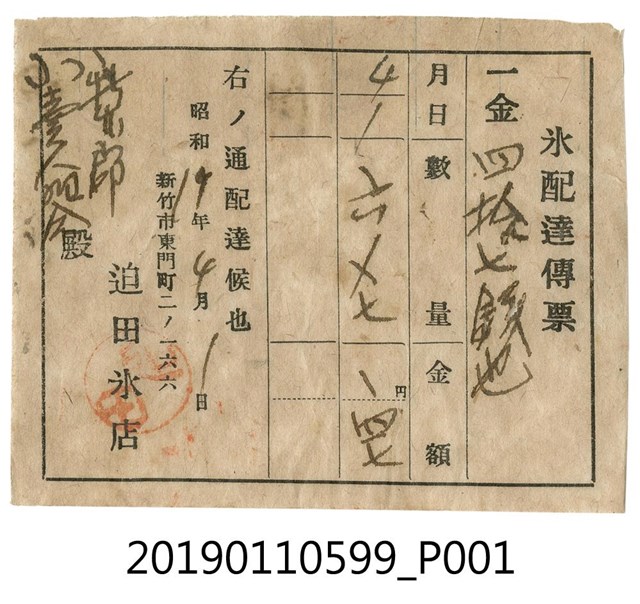 氷配達傳票
一金 四拾七錢也
月日 數量 金額
4/1 六〆七 円 、四七
右ノ通配達候也
昭和19年4月1日
新竹市東門町二ノ一六六
迫田氷店
殿
20190110599_P001